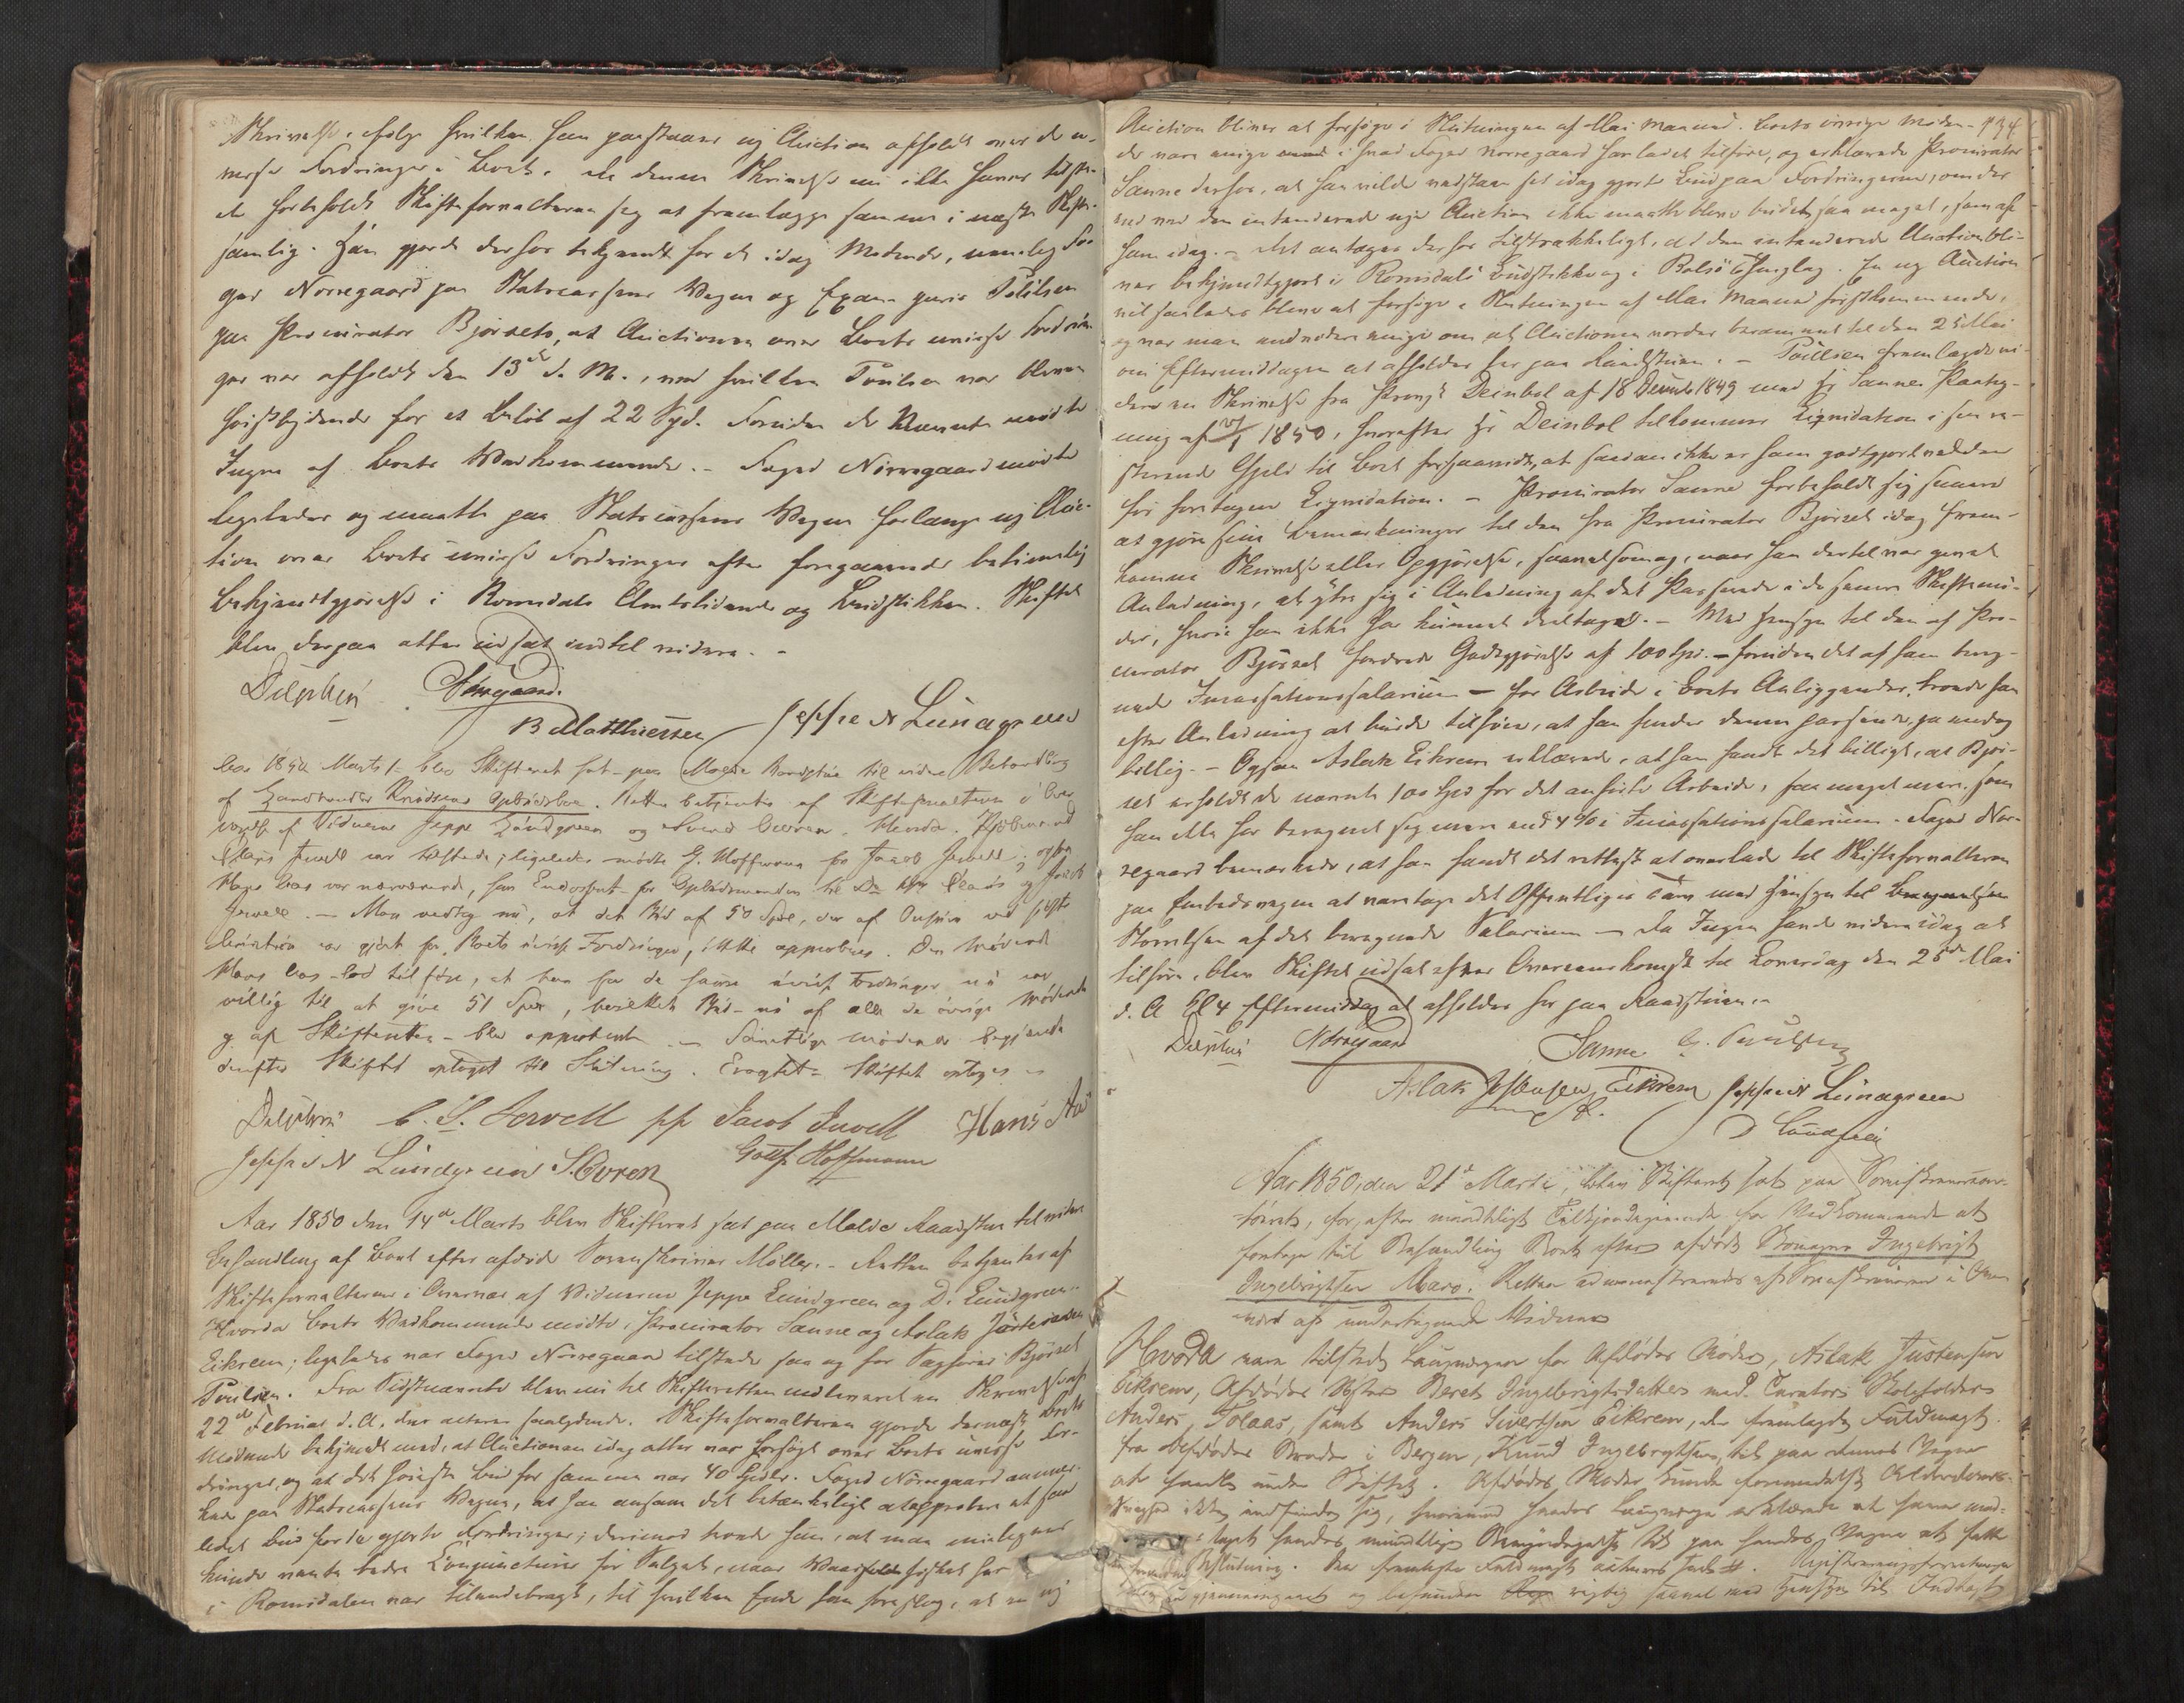 Skrivelse, ifølge hvilken han paastaaer ny Auction afholdt over de u-
visse Fordringer i Boet. Da denne Skrivelse nu ikke haves tilste-
de forbeholdt Skifteforvalteren sig at fremlægge samme i næste Skifte-
samling. Han gjorde derfor bekjendt for de idag Mødende, nemlig Fo-
ged Nørregaard paa Statscassens Vegne og Exam. juris Poulsen
paa Procurator Bjørsets, at Auctionen over Boets uvisse Fordrin-
ger var afholdt den 13de d. M., ved hvilken Poulsen var bleven
høistbydende for et Beløb af 22 Spd. Foruden de Nævnte mødte
Ingen af Boets Vedkommende. - Foged Nørregaard mødte
ligeledes og maatte paa Statscassens Vegne forlange ny Auc-
tion over Boets uvisse Fordringer efter foregaaende betimelig
Bekjendtgjørelse i Romsdals Amtstidende og Budstikken. Skiftet
blev derpaa atter udsat indtil videre. -
Delphin Nørregaard.
B Matthiessen Jeppe N Lundgreen
Aar 1850 Marts 1 - blev Skifteret sat paa Molde Raadstue til videre Behandling
af Handlende Knudsens Opbudsboe. Retten betjentes af Skifteforvalteren i Over
værelse af Vidnerne Jeppe Lundgreen og Svend Overen. Hvorda Kjøbmand
Claus Jervell var tilstede; ligeledes mødte G. Hoffmann for Jacob Jervell; ogsaa
Hans Aas var nærværende, som Endossent for Opbudsmanden til Dhrr Claus og Jacob
Jervell. - Man vedtog nu, at det Bud af 50 Spd, der af ved sidste
Auction var gjort for Boets uvisse Fordringer, ikke approberes. Den mødende
Hans Aas lod tilføre, at han for de samme uvisse Fordringer nu var
villig til at give 51 Spd, hvilket Bud nu af alle de øvrige Mødende
og af Skifteretten blev approberet. - Samtlige mødende begjærede
derefter Skiftet optaget til Slutning. Eragtet: Skiftet optages
Delphin C. S. Jervell pp Jacob Jervell Hans Aas
Jeppe N Lundgreen S. Overen Gottf Hoffmann
Aar 1850 den 14de Marts blev Skifteret sat paa Molde Raadstue til videre
Behandling af Boet efter afdøde Sorenskriver Møller. - Retten betjentes af
Skifteforvalteren i Overvær af Vidnerne Jeppe Lundgreen og D. Lundgreen.
Hvorda Boets Vedkommende mødte, Procurator Sanne og Aslak Justensen
Eikrem; ligeledes var Foged Nørregaard tilstede saa og for Sagfører Bjørset
Poulsen. Fra Sidstnævnte blev nu til Skifteretten indleveret en Skrivelse af
22de Februar d. A. der acteres saalydende. Skifteforvalteren gjorde dernæst Boets
Mødende bekjendt med, at Auctionen idag atter var forsøgt over Boets uvisse For-
dringer, og at det høieste Bud for samme var 40 Spdlr. Foged Nørregaard anmær-
kede paa Statscassens Vegne, at han ansaae det betænkeligt at approbere et saa-
ledes Bud for de gjorte Fordringer; derimod troede han, at man muligens
kunde vente bedre Conjuncturer for Salget, naar Vaarsildfisket her
i Romsdalen var tilendebragt, til hvilken Ende han foreslog, at en ny
934
Auction bliver at forsøge i Slutningen af Mai Maaned. Boets øvrige Møden-
de vare enige i hvad Foged Nørregaard har ladet tilføre, og erklærede Procurator
Sanne derhos, at han vilde vedstaae sit idag gjorte Bud paa Fordringerne, om der
end ved den intenderede nye Auction ikke maatte blive budet saa meget, som af
ham idag. - Det antages derhos tilstrækkeligt, at den intenderede Auction bli-
ver bekjendtgjort i Romsdals Budstikke og i Bolsø Thinglag. En ny Auction
vil saaledes blive at forsøge i Slutningen af Mai Maaned førstkommende,
og var man endvidere enige om, at Auctionen vorder berammet til den 25 Mai
om Eftermiddagen at afholdes her paa Raadstuen. - Poulsen fremlagde vi-
dere en Skrivelse fra Provst Deinbol af 18 Decembr 1849 med Hr Sannes Paateg-
ning af 1850, hvorefter Hr Deinbol tilkommer Liqvidation i sin re-
sterende Gjeld til Boet forsaavidt, at saadan ikke er ham godtgjort ved den
før foretagne Liqvidation. - Procurator Sanne forbeholdt sig senere
at gjøre sine Bemærkninger til den fra Procurator Bjørset idag frem-
komne Skrivelse eller Opgjørelse, saavelsom og, naar han dertil var givet
Anledning, at ytre sig i Anledning af det Passerede i de senere Skiftemø-
der, hvori han ikke har kunnet deeltaget. - Med Hensyn til den af Pro-
curator Bjørset fordrede Godtgjørelse af 100 Spd. - foruden det af ham bereg-
nede Incassationssalarium - for Arbeide i Boets Anliggender, troede han
efter Anledning at burde tilføre, at han finder denne passende, ja endog
billig. - Ogsaa Aslak Eikrem erklærede, at han fandt det billigt, at Bjør-
set erholdt de nævnte 100 Spd for det anførte Arbeide, saa meget mere som
han ikke har beregnet sig mere end 4 % i Incassationssalarium. Foged Nør-
regaard bemærkede, at han fandt det rettest at overlade til Skifteforvalteren
paa Embedsvegne at varetage det Offentliges Tarv med Hensyn til
Størrelsen af det beregnede Salarium - Da Ingen havde videre idag at
tilføre, blev Skiftet udsat efter Overeenskomst til Løverdag den 25de Mai
d. A Kl 4 Eftermiddag at afholdes her paa Raadstuen. -
Delphin Nørregaard Sanne G. Poulsen
Aslak Justensen Eikrem Jeppe N Lundgreen
D Lundgreen
Aar 1850, den 21de Martii, blev Skifteret sat paa Sorenskrivercon-
toiret, for, efter mundtligt Tilkjendegivende for Vedkommende at
foretage til Behandling Boet efter afdøde Ingebrigt
Ingebrigtsen. Retten administreredes af Sorenskriveren i Over-
vær af undertegnede Vidner
Hvorda vare tilstede Laugværgen for Afdødes Moder, Aslak Justensen
Eikrem, Afdødes Søster Beret Ingebrigtsdatter med Curator Skoleholder
Anders Tolaas, samt Anders Sivertsen Eikrem, der fremlagde Fuldmagt
fra Afdødes Broder i Bergen, Knud Ingebrigtsen, til paa dennes Vegne
at handle under Skiftet. Afdødes Moder kunde formedelst Alderdoms-
svaghed ikke indfinde sig, hvorimod hendes Laugværge erklærede at have med-
hendes mundtlige Bemyndigelse til paa hendes Vegne at
Afslutning. Den fremlagte Fuldmagt acteres saal. Registreringsforretningen
gjennemgaaet og befunden rigtig saavel med Hensyn til Indtægt